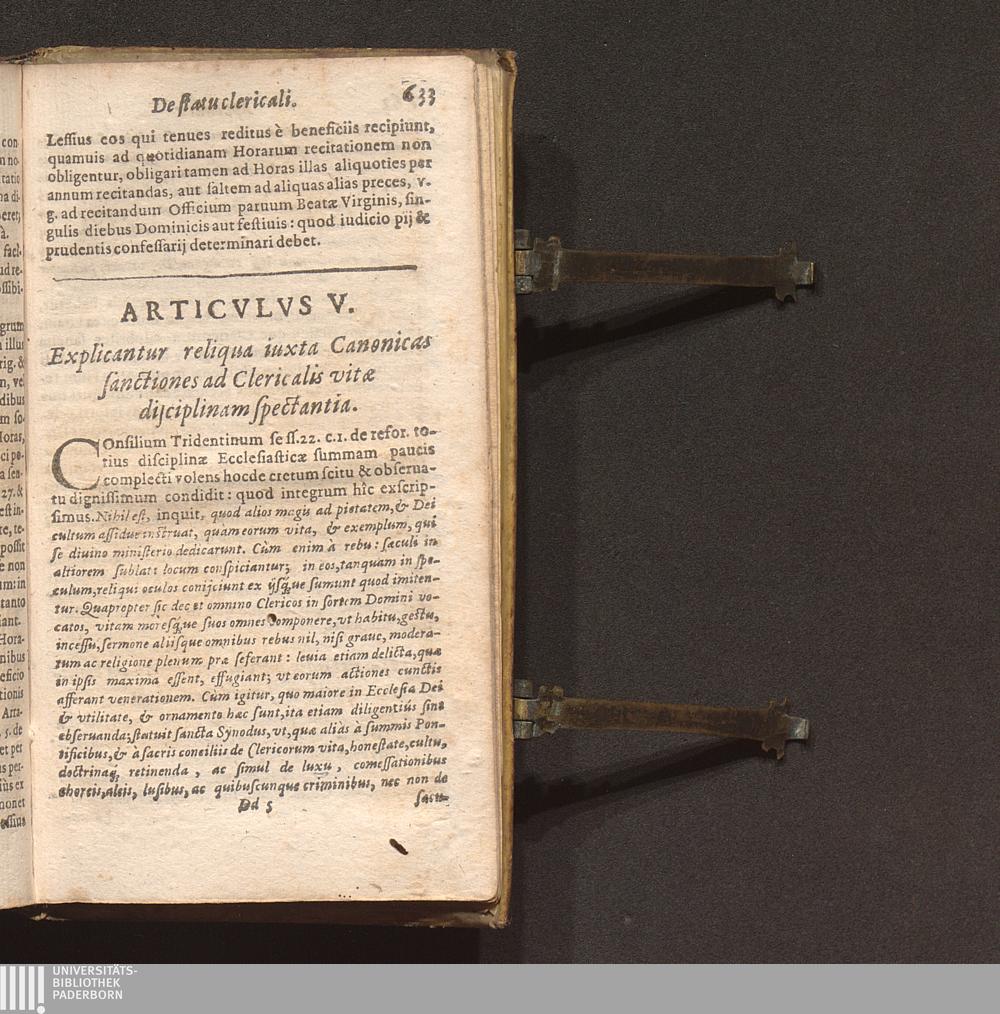 De statu clericali. 633
Lessius eos qui tenues reditus è beneficiis recipiunt,
quamuis ad quotidianam Horarum recitationem non
obligentur, obligari tamen ad Horas illas aliquoties per
annum recitandas, aut saltem ad aliquas alias preces, v.
g. ad recitandum Officium paruum Beatæ Virginis, sin-
gulis diebus Dominicis aut festiuis: quod iudicio pij &
prudentis confessarij determinari debet.
ARTICVLVS V.
Explicantur reliqua iuxta Canonicas
sanctiones ad Clericalis vitæ
disciplinam spectantia.
COnsilium Tridentinum se ss. 22. c. 1. de refor. to-
tius disciplinæ Ecclesiasticæ summam paucis
complecti volens hocde cretum scitu & obserua-
tu dignissimum condidit: quod integrum hîc exscrip-
simus. Nihil est, inquit, quod alios magis ad pietatem, & Dei
cultum assidue instruat, quam eorum vita, & exemplum, qui
se diuino ministerio dedicarunt. Cùm enim à rebus saculi in
altiorem sublati locum conspiciantur; in eos, tanquam in spe-
culum, reliqui oculos conijciunt ex ijsq́ue sumunt quod imiten-
tur. Quapropter sic decet omnino Clericos in sortem Domini vo-
catos, vitam moresq́ue suos omnes componere, vt habitu, gestu,
incessu, sermone aliisque omnibus rebus nil, nisi graue, modera-
tum ac religione plenum præ seferant: leuia etiam delicta, quæ
in ipsis maxima essent, effugiant; vt eorum actiones cunctis
afferant venerationem. Cùm igitur, quo maiore in Ecclesia Dei
& vtilitate, & ornamento hac sunt, ita etiam diligentiùs sint
obseruanda; statuit sancta Synodus, vt, quæ aliàs à summis Pon-
tificibus, & à sacris conciliis de Clericorum vita, honestate, cultu,
doctrinaq́; retinenda, ac simul de luxu, comessationibus
choreis, aleis, lusibus, ac quibuscunque criminibus, nec non de
Dd 5 sacu-
con
illus
rig. &
dibus
Horas,
27. &
possit
e non
um: in
tanto
iant.
Hora-
nibus
eficio
tionis
5. de
et per
ius ex
monet
essius
UNIVERSITÄTS-
BIBLIOTHEK
PADERBORN